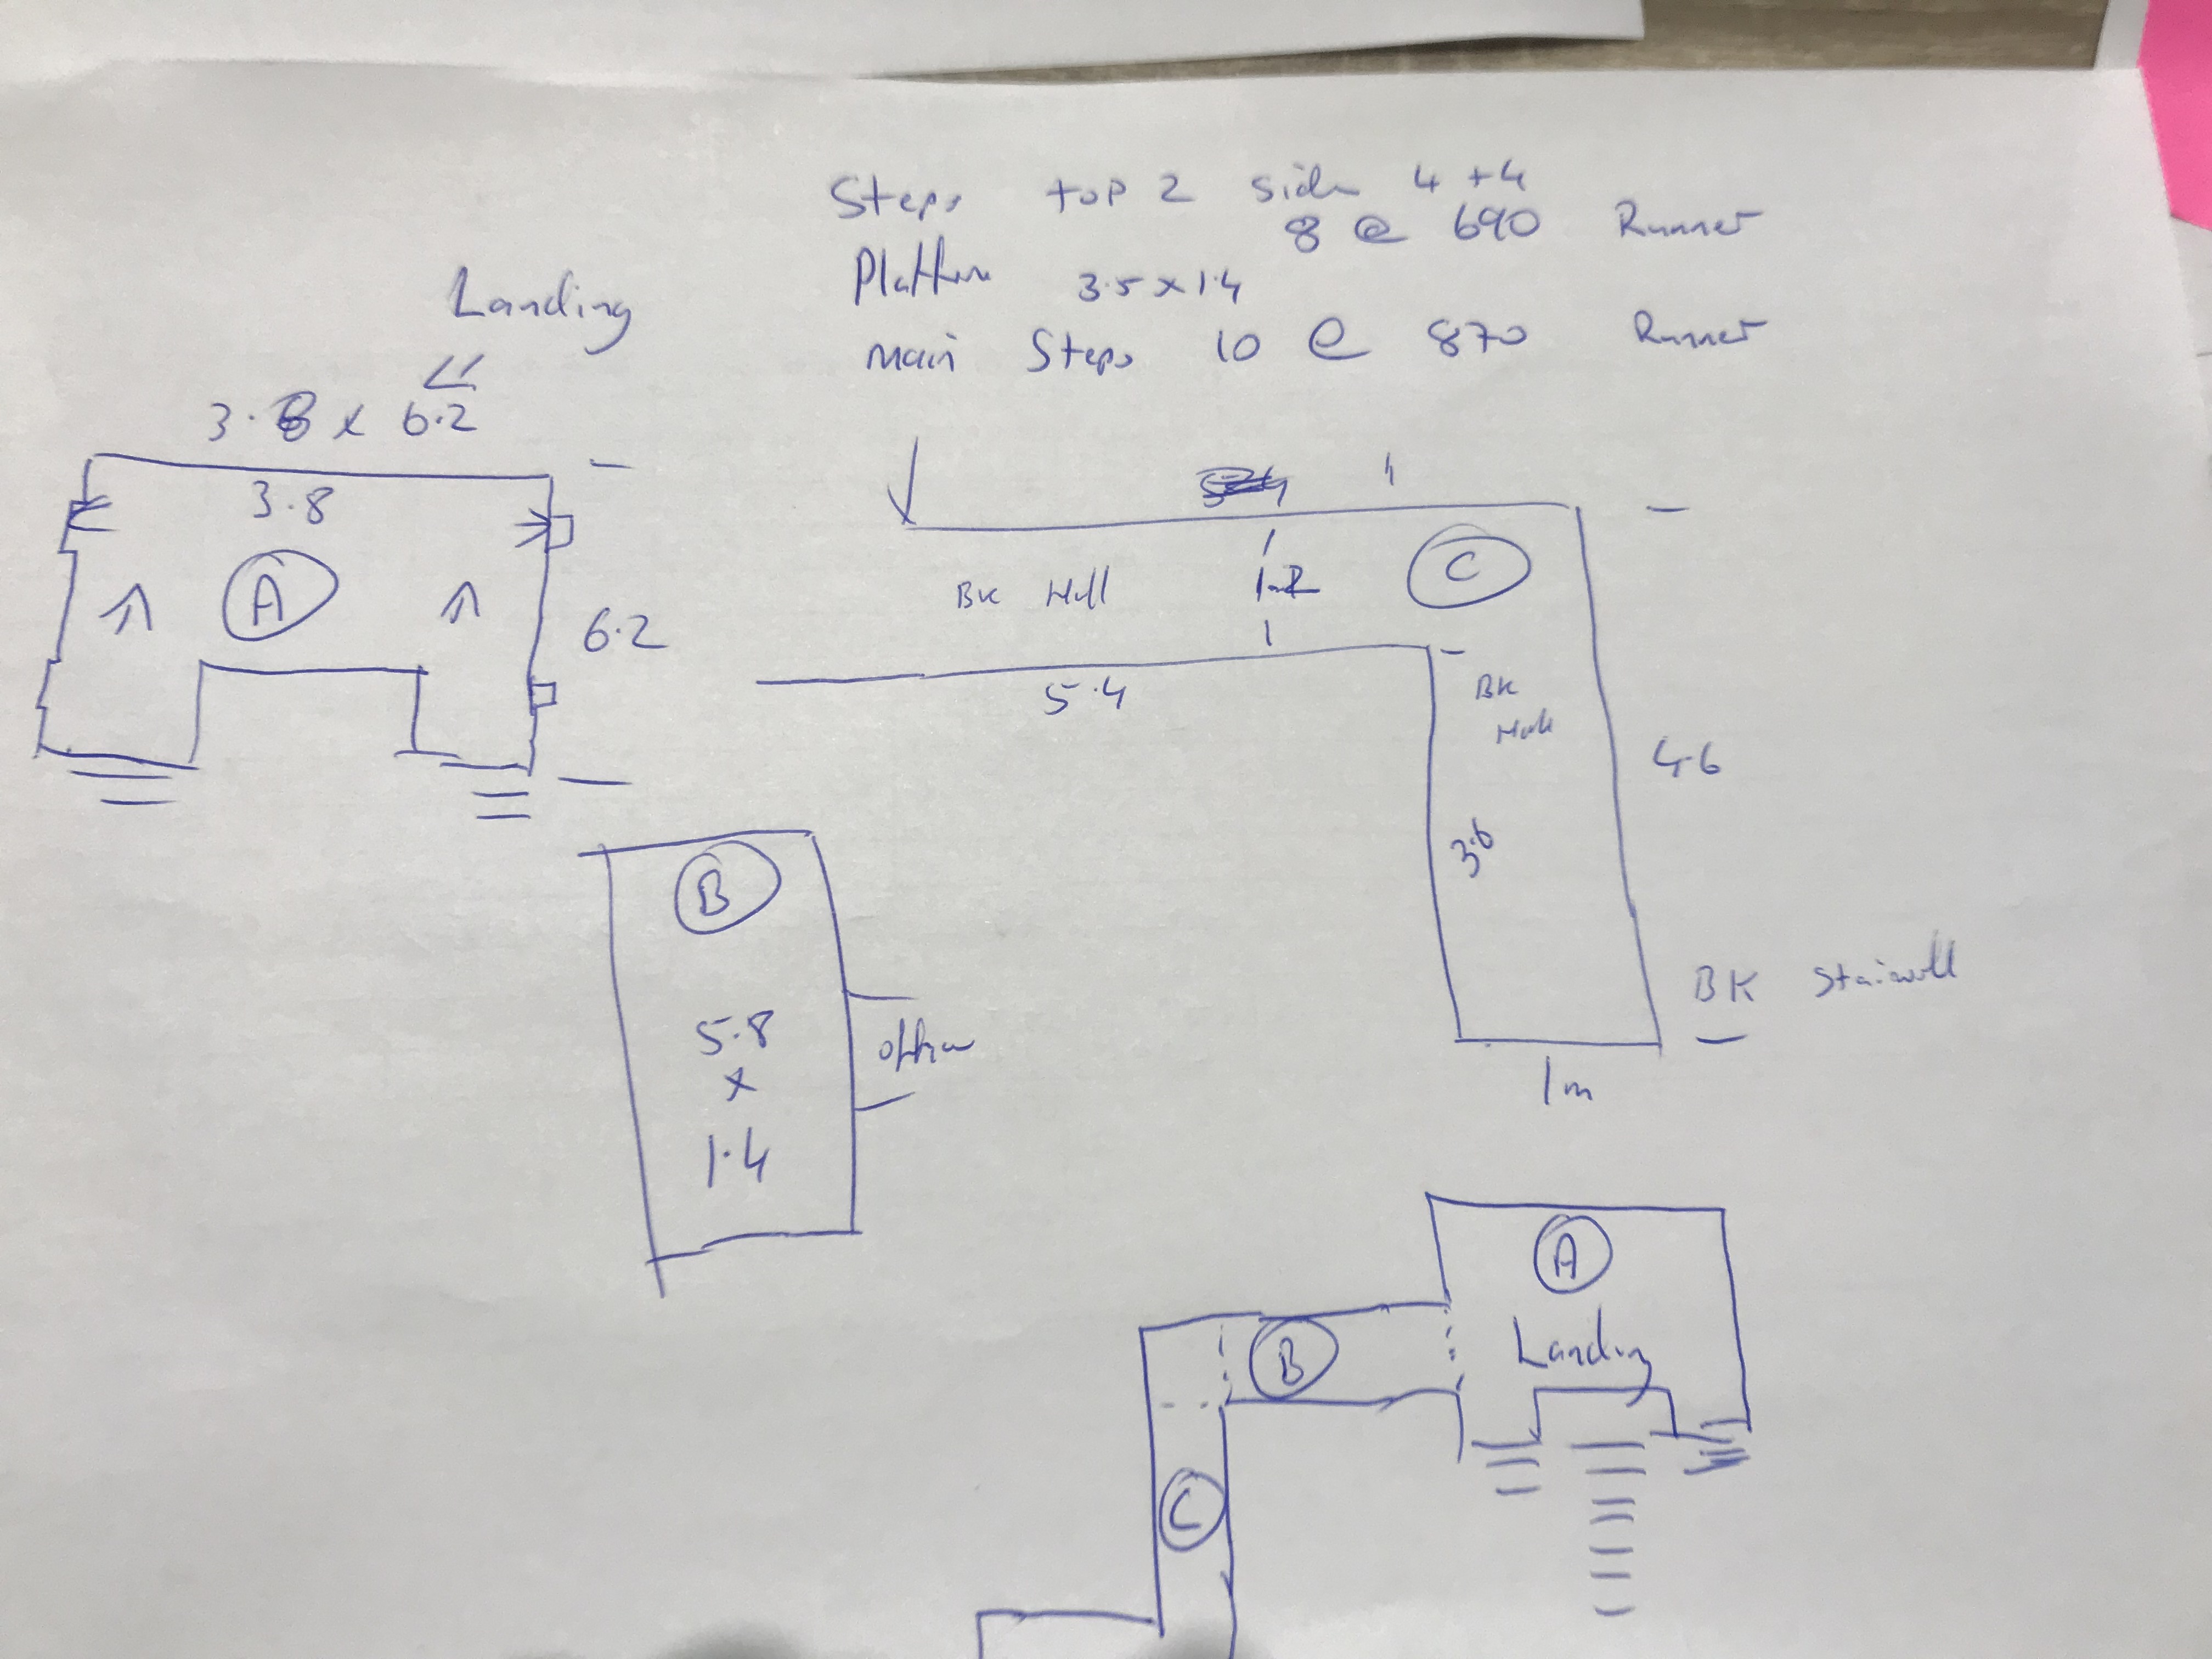 Steps top 2 side 4 + 4
8 @ 690 Runner
Platform 3.5 x 1.4
Main Steps 10 @ 870 Runner
Landing
3.8 x 6.2
3.8
A
6.2
C
BK Hall
5.4
BK
Hall
4.6
3.6
BK Stairwell
1m
B
5.8
x
1.4
A
Landing
B
C